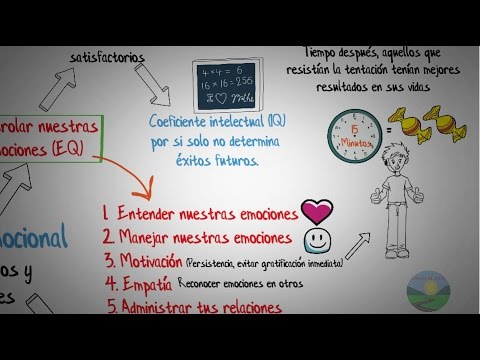 satisfactorios
4 x 4 = 6
16 x 16 = 256
I ♡ Maths
Tiempo después, aquellos que
resistían la tentación tenían mejores
resultados en sus vidas
15
Minutos
=
rolar nuestras
ociones (E.Q)
Coeficiente intelectual (IQ)
por si solo no determina
éxitos futuros.
1. Entender nuestras emociones
2. Manejar nuestras emociones
3. Motivación (Persistencia, evitar gratificación inmediata)
4. Empatía Reconocer emociones en otros
5. Administrar tus relaciones
ocional
os y
es